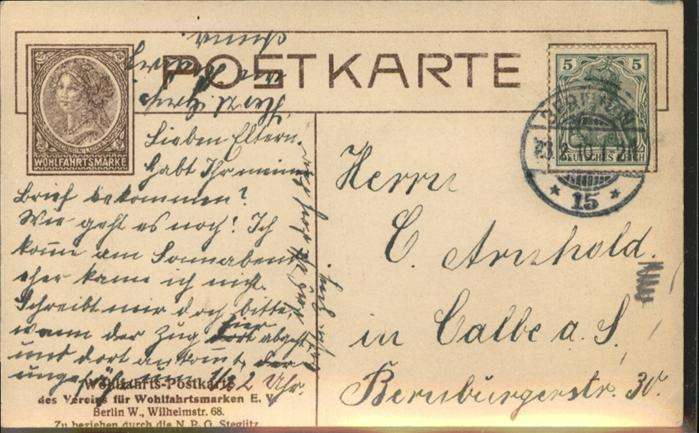 POSTKARTE
WOHLFAHRTSMARKE
5 5
DEUTSCHES REICH
* 15 *
Lieben Eltern.
Habt Ihr meinen
Brief bekommen?
Wie geht es noch! Ich
komme am Sonnabend
eher kann ich nicht.
Schreibt mir doch bitte,
wann der Zug hier abgeht
und dort ankomt, der
ungefähr um 1/2 2 Uhr.
Herrn
C. Arnhold.
in Calbe a. S.
Bernburgerstr. 30.
Wohlfahrts-Postkarte
des Vereins für Wohlfahrtsmarken E. V.
Berlin W., Wilhelmstr. 68.
Zu beziehen durch die N. P. G. Steglitz